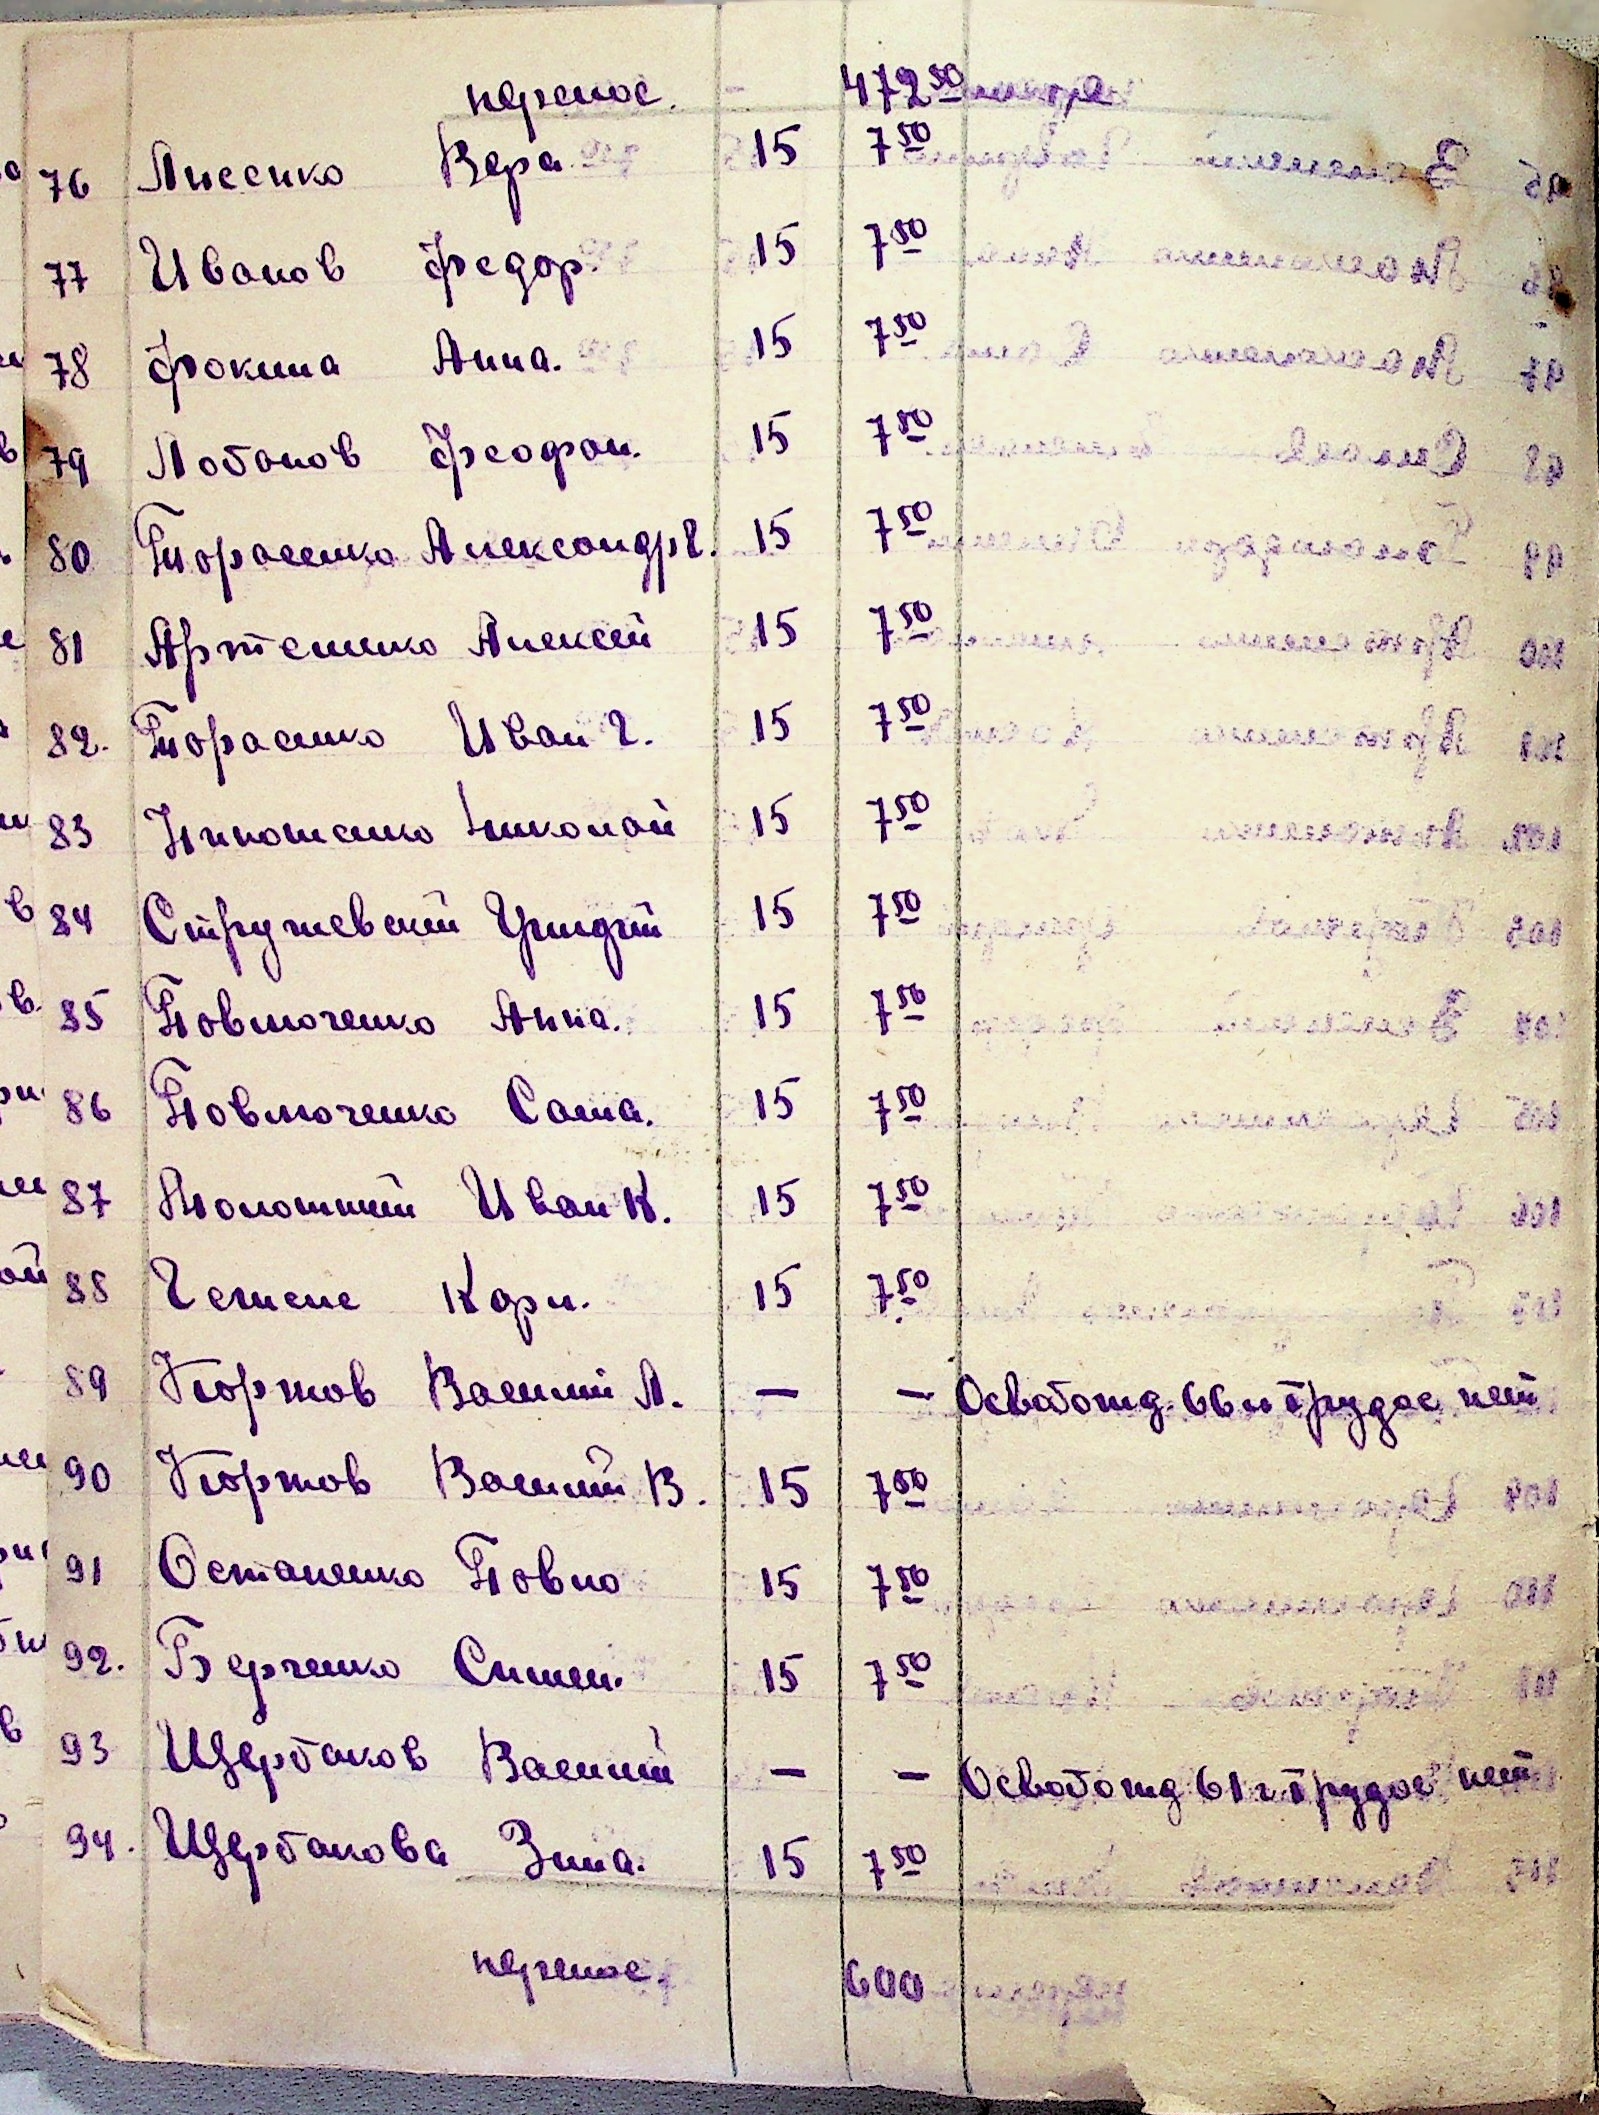 перенос. - 472 50
76 Лисенко Вера 15 7 50
77 Иванов Федор. 15 7 50
78 Фокина Анна. 15 7 50
79 Лобанов Феофан. 15 7 50
80 Тарасенко Александр Г. 15 7 50
81 Артеменко Алексей 15 7 50
82. Тарасенко Иван Г. 15 7 50
83 Николай 15 7 50
84 Стружевский 15 7 50
85 Павлюченко Анна. 15 7 50
86 Павлюченко Саша. 15 7 50
87 Иван К. 15 7 50
88 Карл. 15 7 50
89 Коржов Василий А. — — Освобожд. 66 л трудос нет
90 Коржов Василий В. 15 7 50
91 Остапенко Павло 15 7 50
92. Берченко Симен. 15 7 50
93 Щербаков Василий — — Освобожд 61 г трудос нет
94. Щербакова Зина. 15 7 50
перенос. 600